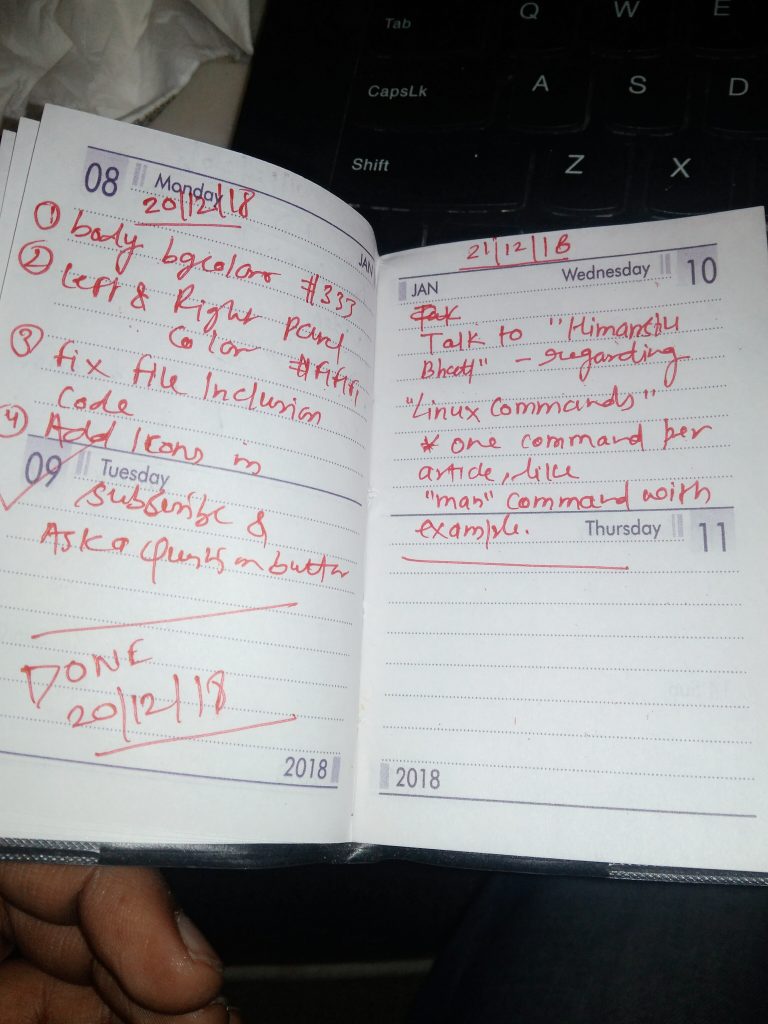 Tab Q W E
CapsLk A S D
Shift Z X
08 Monday
20/12/18
JAN
① body bgcolor #333
② Left & Right panel
Color #f1f1f1
③ fix file Inclusion
Code
④ Add Icons in
09 Tuesday
Subscribe &
Ask a Question button
DONE
20/12/18
2018
21/12/18
JAN Wednesday 10
Talk to "Himanshu
" - regarding
"Linux Commands"
* one command per
article, like
"man" command with
example.
Thursday 11
2018